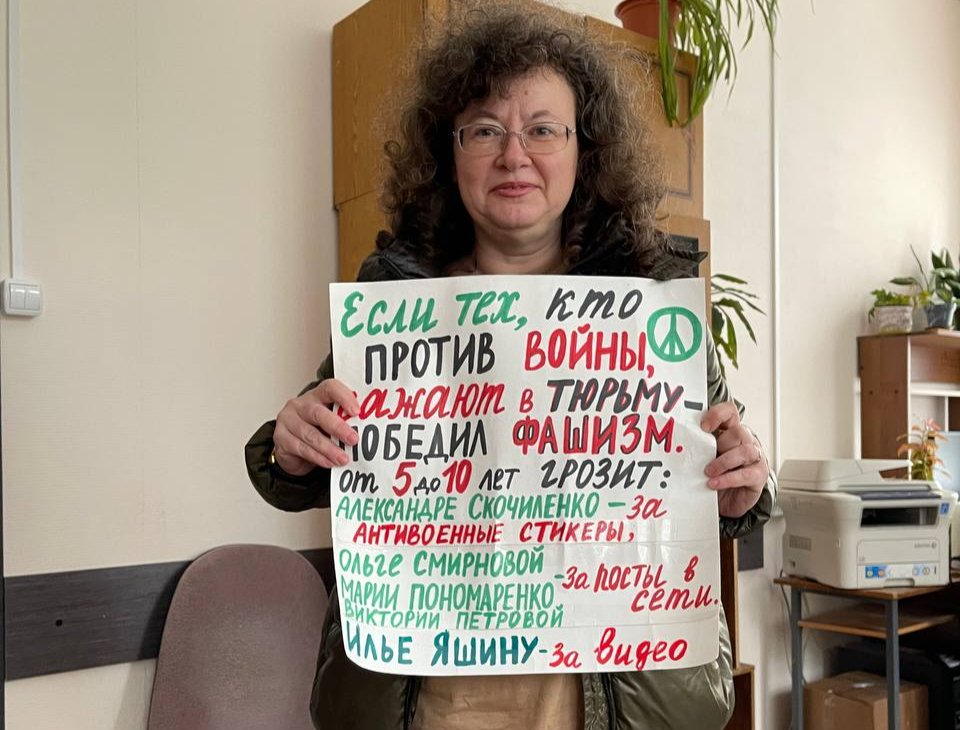 Если тех, кто
против войны,
сажают в тюрьму –
победил фашизм.
от 5 до 10 лет грозит:
Александре Скочиленко – за
антивоенные стикеры,
Ольге Смирновой
Марии Пономаренко - за посты в сети.
Виктории Петровой
Илье Яшину - за видео